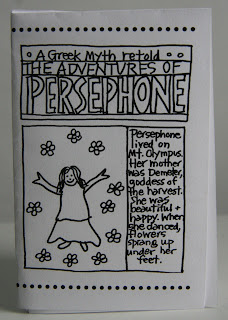 A Greek Myth retold
THE ADVENTURES OF
PERSEPHONE
Persephone
lived on
Mt. Olympus.
Her mother
was Demeter,
goddess of
the harvest.
She was
beautiful +
happy. When
she danced,
flowers
sprang up
under her
feet.